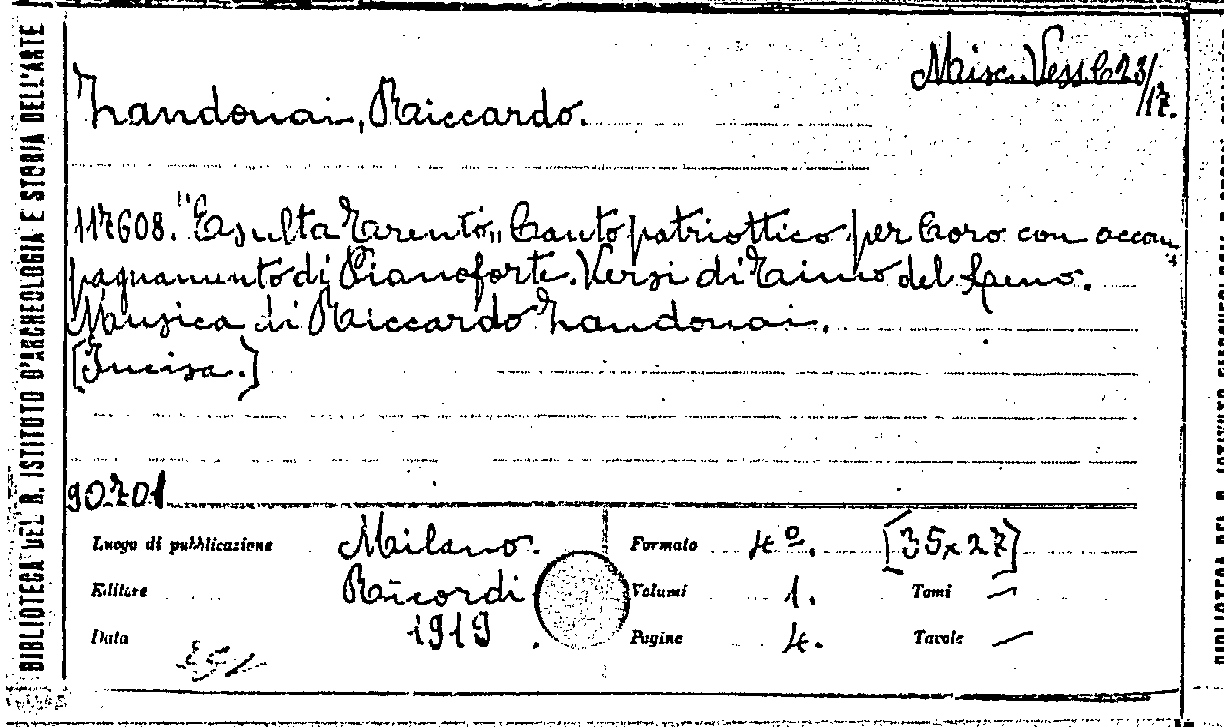 BIBLIOTECA DEL R. ISTITUTO D'ARCHEOLOGIA E STORIA DELL'ARTE
Misc. Vess. C 23/17.
Zandonai, Riccardo.
117608. "Esulta Trento„ Canto patriottico per Coro con accom-
pagnamento di Pianoforte. Versi di Taino del Leno.
Musica di Riccardo Zandonai.
[Incisa.]
90701
Luogo di pubblicazione Milano. Formato 4º. [35x27]
Editore Ricordi Volumi 1. Tomi —
Data 1919 Pagine 4. Tavole —